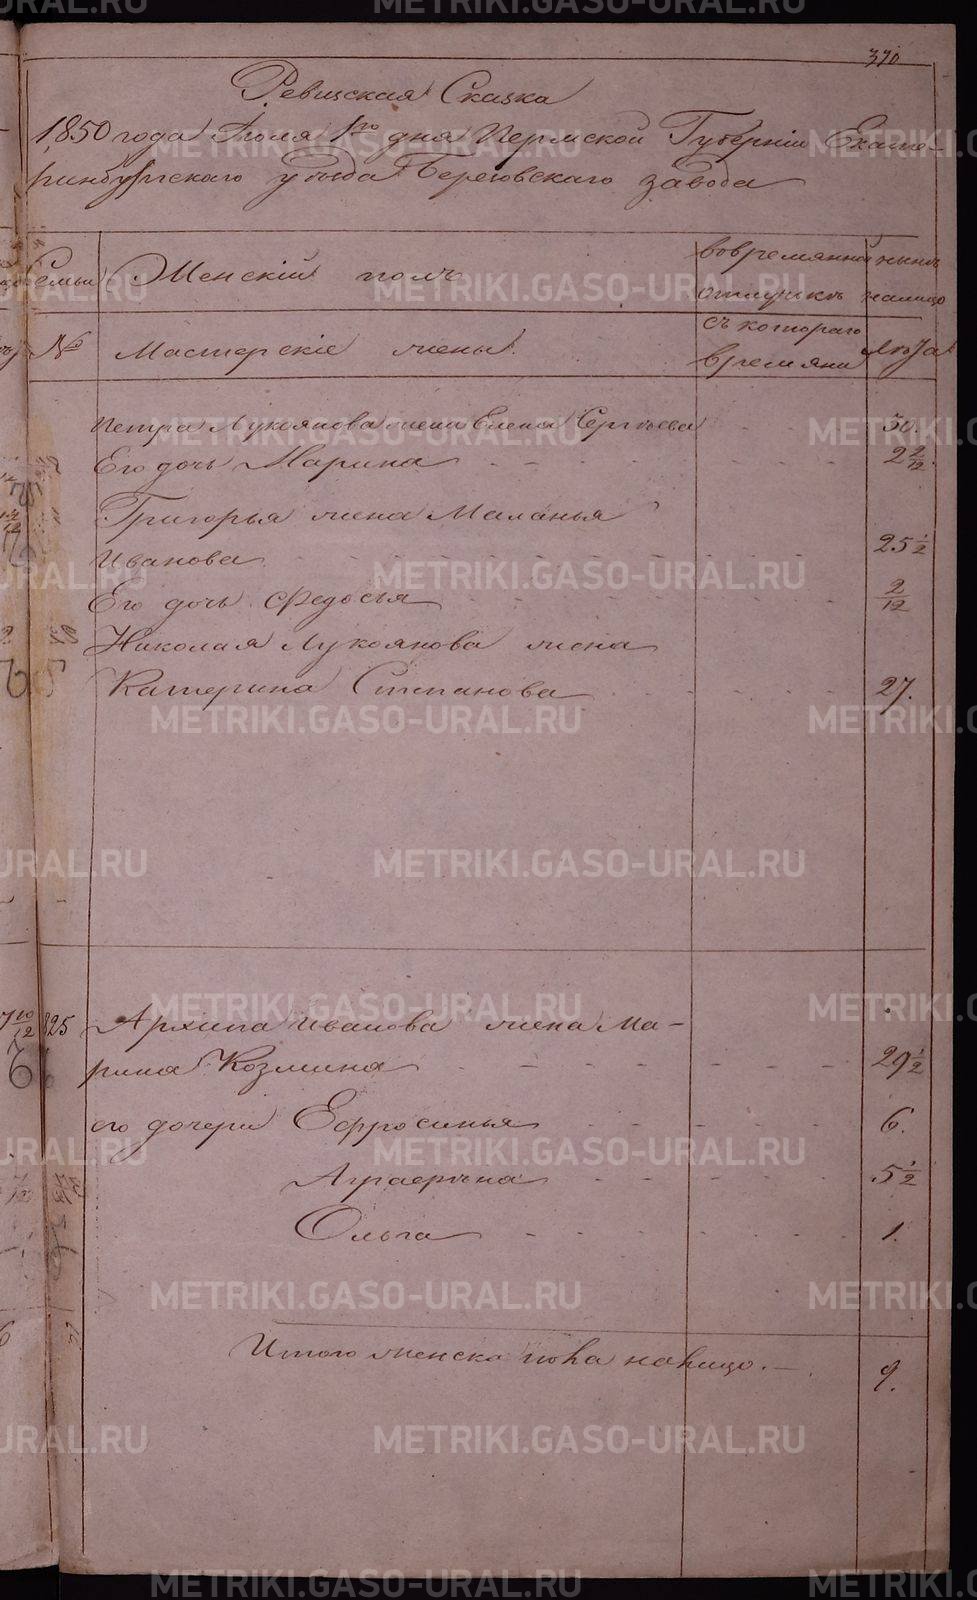 370
Ревизская Сказка
1850 года Июля 1го дня Пермской Губернiи Екате-
ринбургскаго уѣзда Березовскаго завода
Семьи Женскiй полъ вовремянной нынѣ
отлучкѣ налицо
№ Мастерскiе жены. съ котораго Лѣта
времяни
Петра Лукоянова жена Елена Сергѣева 30.
Его дочь Марина 2 2/12.
Григорья жена Маланья
Иванова 25 1/2
Его дочь Федосья 2/12
Николая Лукоянова жена
Катерина Степанова 27.
825 Архипа Иванова жена Ма-
рина Козмина 29 1/2
его дочери Ефросинья 6.
Аграфѣна 5 1/2
Ольга 1.
Итого женска пола налицо. 9.
METRIKI.GASO-URAL.RU